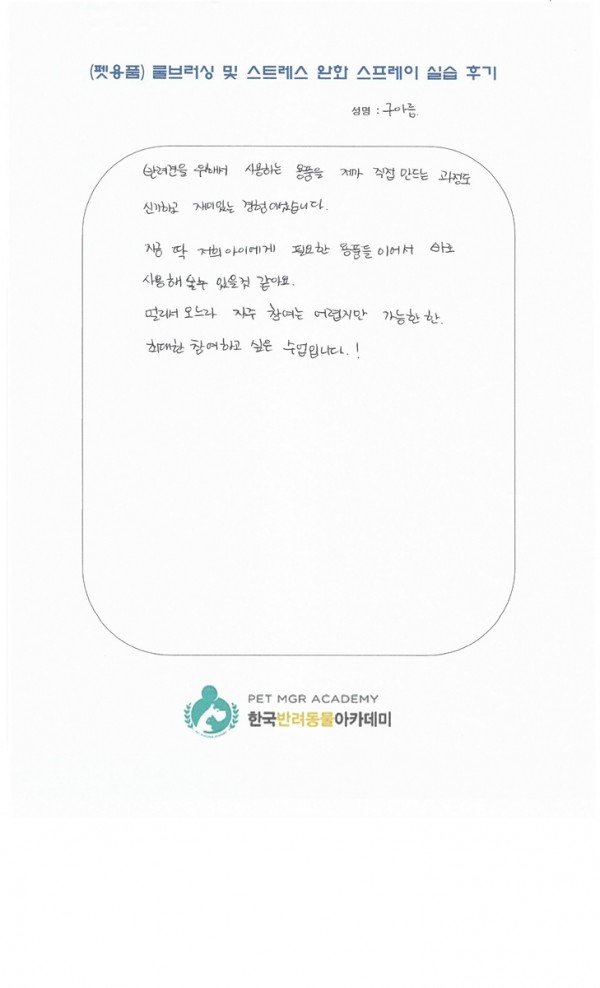 (펫용품) 룰브러싱 및 스트레스 완화 스프레이 실습 후기
성명 : 구아름
반려견을 위해서 사용하는 용품을 제가 직접 만드는 과정도
신기하고 재미있는 경험이었습니다.
지금 딱 저희아이에게 필요한 용품들이어서 바로
사용해 볼수 있을것 같아요.
멀리서 오느라 자주 참여는 어렵지만 가능한 한.
최대한 참여하고 싶은 수업입니다.!
PET MGR ACADEMY
한국반려동물아카데미